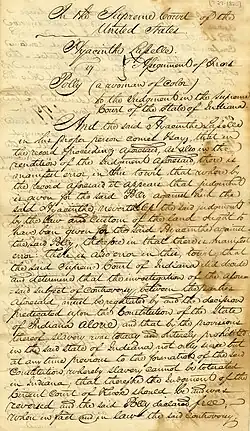 In the Supreme Court of the
United States
Hyacinth Lasselle
vs Assignment of Errors
Polly (a woman of Color)
to the Judgment in the Supreme
Court of the State of Indiana
And the said Hyacinthe Lasselle
in his proper person comes & says, that in
the record & proceedings aforesaid, as also in the
rendition of the Judgment aforesaid, there is
manifest error in this court that whereas by
the record aforesaid it appears that judgment
is given for the said Polly against him the
said Hyacinthe, nevertheless the said judgment
by the law and custom of the land ought to
have been given for the said Hyacinthe against
the said Polly, therefore in that there is manifest
error. there is also error in this, to wit, that
the said Supreme Court of Indiana did decide
and determine that the investigation of the above
said subject of controversy between the parties
aforesaid must be regulated by and the decision
predicated upon the Constitution of the State
of Indiana alone, and that by the provisions
thereof slavery was totally and entirely prohibited
in the said State of Indiana, not only since but
at any time previous to the formation of the said
Constitution, whereby Slavery cannot be tolerated
in Indiana, that therefore the Judgment of the
Circuit Court of Knox should be and was
reversed and the said Polly declared free
when in fact and in law the said controversy